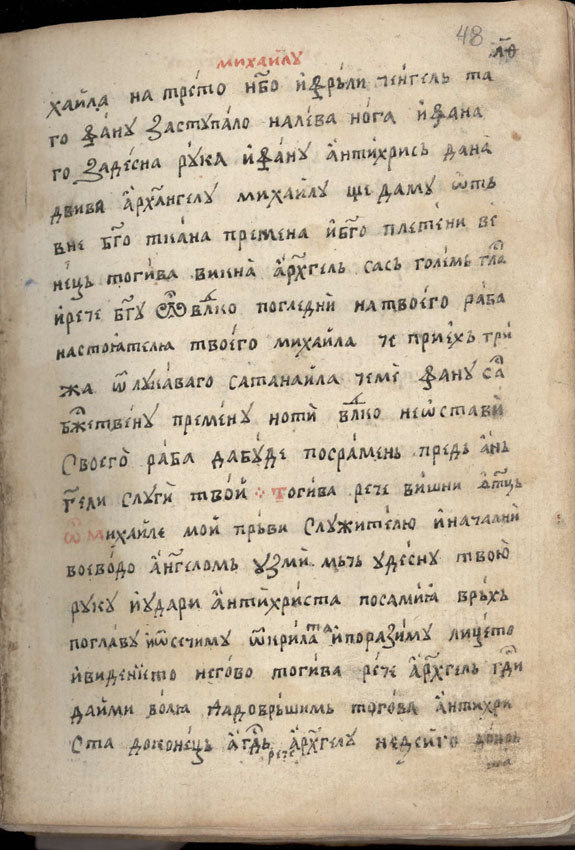 48
михаилу
хаила на трето нб҃о и фрьли ченгель та
го фану заступало налева нога ифана
го задесна рука ифану антихрись дана
двива арх҃ангелу михаилу ще даму ѿть
вне бг҃о ткана премена ибг҃о плетени ве
нець тогива викна арх҃гель сась големь гла
ирече бг҃у ѽ влⷣко погледни на твоего раба
настоятелꙗ твоего михаила че приехь три
жа ѿ лукаваго сатанаила чеме фану са
бж҃ествену премену ноти влⷣко неѡстави
своего раба дабуде посрамень предь ань
г҃ели слуги твои тогива рече вишни ѿт҃ць
ѽ михаиле мой прьви служителю иначални
воеводо анг҃еломь узми мьчь удесну твою
руку иудари антихриста посамиꙗ врьхь
поглаву иѿсечиму ѿкрилата ипоразиму лицето
ивидението негово тогива рече арх҃гель гд҃и
даими волꙗ надоврьшимь тогова антихри
ста доконець а гд҃ь рече арх҃гелу недеиго